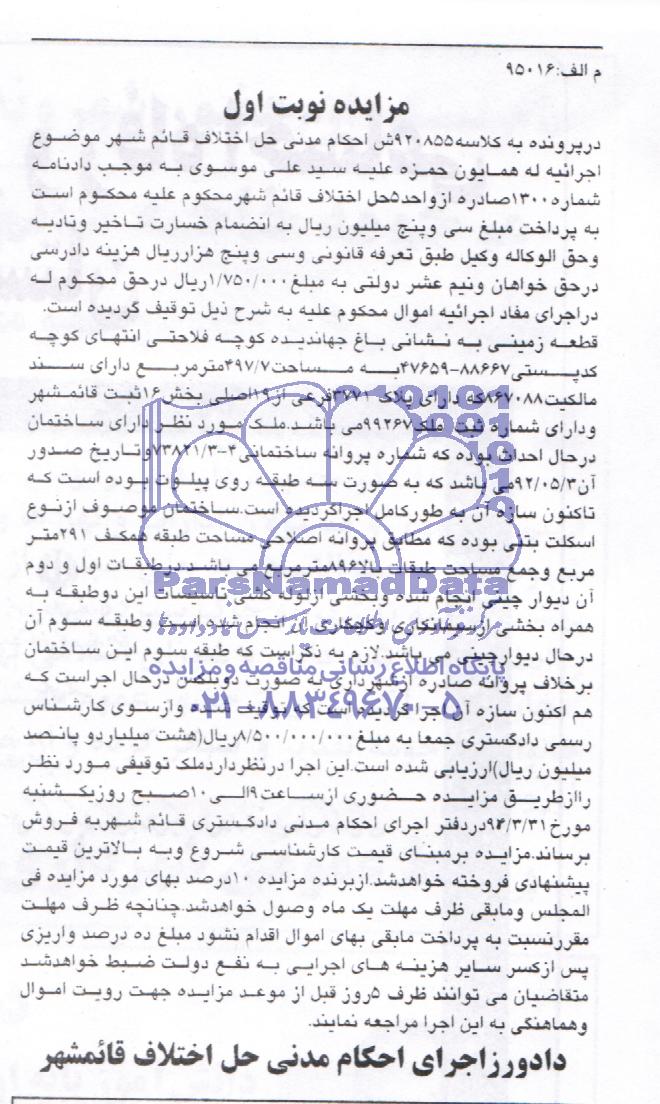 م الف:۹۵۰۱۶
مزایده نوبت اول
درپرونده به کلاسه۹۲۰۸۵۵ش احکام مدنی حل اختلاف قائم شهر موضوع
اجرائیه له همایون حمزه علیه سید علی موسوی به موجب دادنامه
شماره۱۳۰۰صادره ازواحد۵حل اختلاف قائم شهرمحکوم علیه محکوم است
به پرداخت مبلغ سی وپنج میلیون ریال به انضمام خسارت تاخیر وتادیه
وحق الوکاله وکیل طبق تعرفه قانونی وسی وپنج هزارریال هزینه دادرسی
درحق خواهان ونیم عشر دولتی به مبلغ۱/۷۵۰/۰۰۰ریال درحق محکوم له
دراجرای مفاد اجرائیه اموال محکوم علیه به شرح ذیل توقیف گردیده است.
قطعه زمینی به نشانی باغ جهاندیده کوچه فلاحتی انتهای کوچه
کدپستی۸۸۶۶۷-۴۷۶۵۹به مساحت۴۹۷/۷مترمربع دارای سند
مالکیت۸۶۷۰۸۸که دارای پلاک ۳۷۷۱فرعی از۱۹اصلی بخش۱۶ثبت قائمشهر
ودارای شماره ثبت ملک۹۹۲۶۷می باشد.ملک مورد نظر دارای ساختمان
درحال احداث بوده که شماره پروانه ساختمانی۴-۷۳۸۲۱/۳وتاریخ صدور
آن۹۲/۰۵/۳می باشد که به صورت سه طبقه روی پیلوت بوده است که
تاکنون سازه آن به طورکامل اجراگردیده است.ساختمان موصوف ازنوع
اسکلت بتنی بوده که مطابق پروانه اصلاحی مساحت طبقه همکف ۲۹۱متر
مربع وجمع مساحت طبقات بالا۸۹۶مترمربع می باشد درطبقات اول و دوم
آن دیوار چینی انجام شده وبخشی ازلوله کشی تاسیسات این دوطبقه به
همراه بخشی ازسفالکاری وگچکاری آن انجام شده است وطبقه سوم آن
درحال دیوارچینی می باشد.لازم به ذکراست که طبقه سوم این ساختمان
برخلاف پروانه صادره ازشهرداری به صورت دوبلکس درحال اجراست که
هم اکنون سازه آن اجراگردیده است که توقیف شده وازسوی کارشناس
رسمی دادگستری جمعا به مبلغ۸/۵۰۰/۰۰۰/۰۰۰ریال(هشت میلیاردو پانصد
میلیون ریال)ارزیابی شده است.این اجرا درنظرداردملک توقیفی مورد نظر
راازطریق مزایده حضوری ازساعت۹الی۱۰صبح روزیکشنبه
مورخ۹۴/۳/۳۱دردفتر اجرای احکام مدنی دادگستری قائم شهربه فروش
برساند.مزایده برمبنای قیمت کارشناسی شروع وبه بالاترین قیمت
پیشنهادی فروخته خواهدشد.ازبرنده مزایده ۱۰درصد بهای مورد مزایده فی
المجلس ومابقی ظرف مهلت یک ماه وصول خواهدشد.چنانچه ظرف مهلت
مقررنسبت به پرداخت مابقی بهای اموال اقدام نشود مبلغ ده درصد واریزی
پس ازکسر سایر هزینه های اجرایی به نفع دولت ضبط خواهدشد
متقاضیان می توانند ظرف ۵روز قبل از موعد مزایده جهت رویت اموال
وهماهنگی به این اجرا مراجعه نمایند.
دادورزاجرای احکام مدنی حل اختلاف قائمشهر
ParsNamadData
پایگاه اطلاع رسانی مناقصه و مزایده
۰۲۱-۸۸۳۴۹۶۷۰-۵